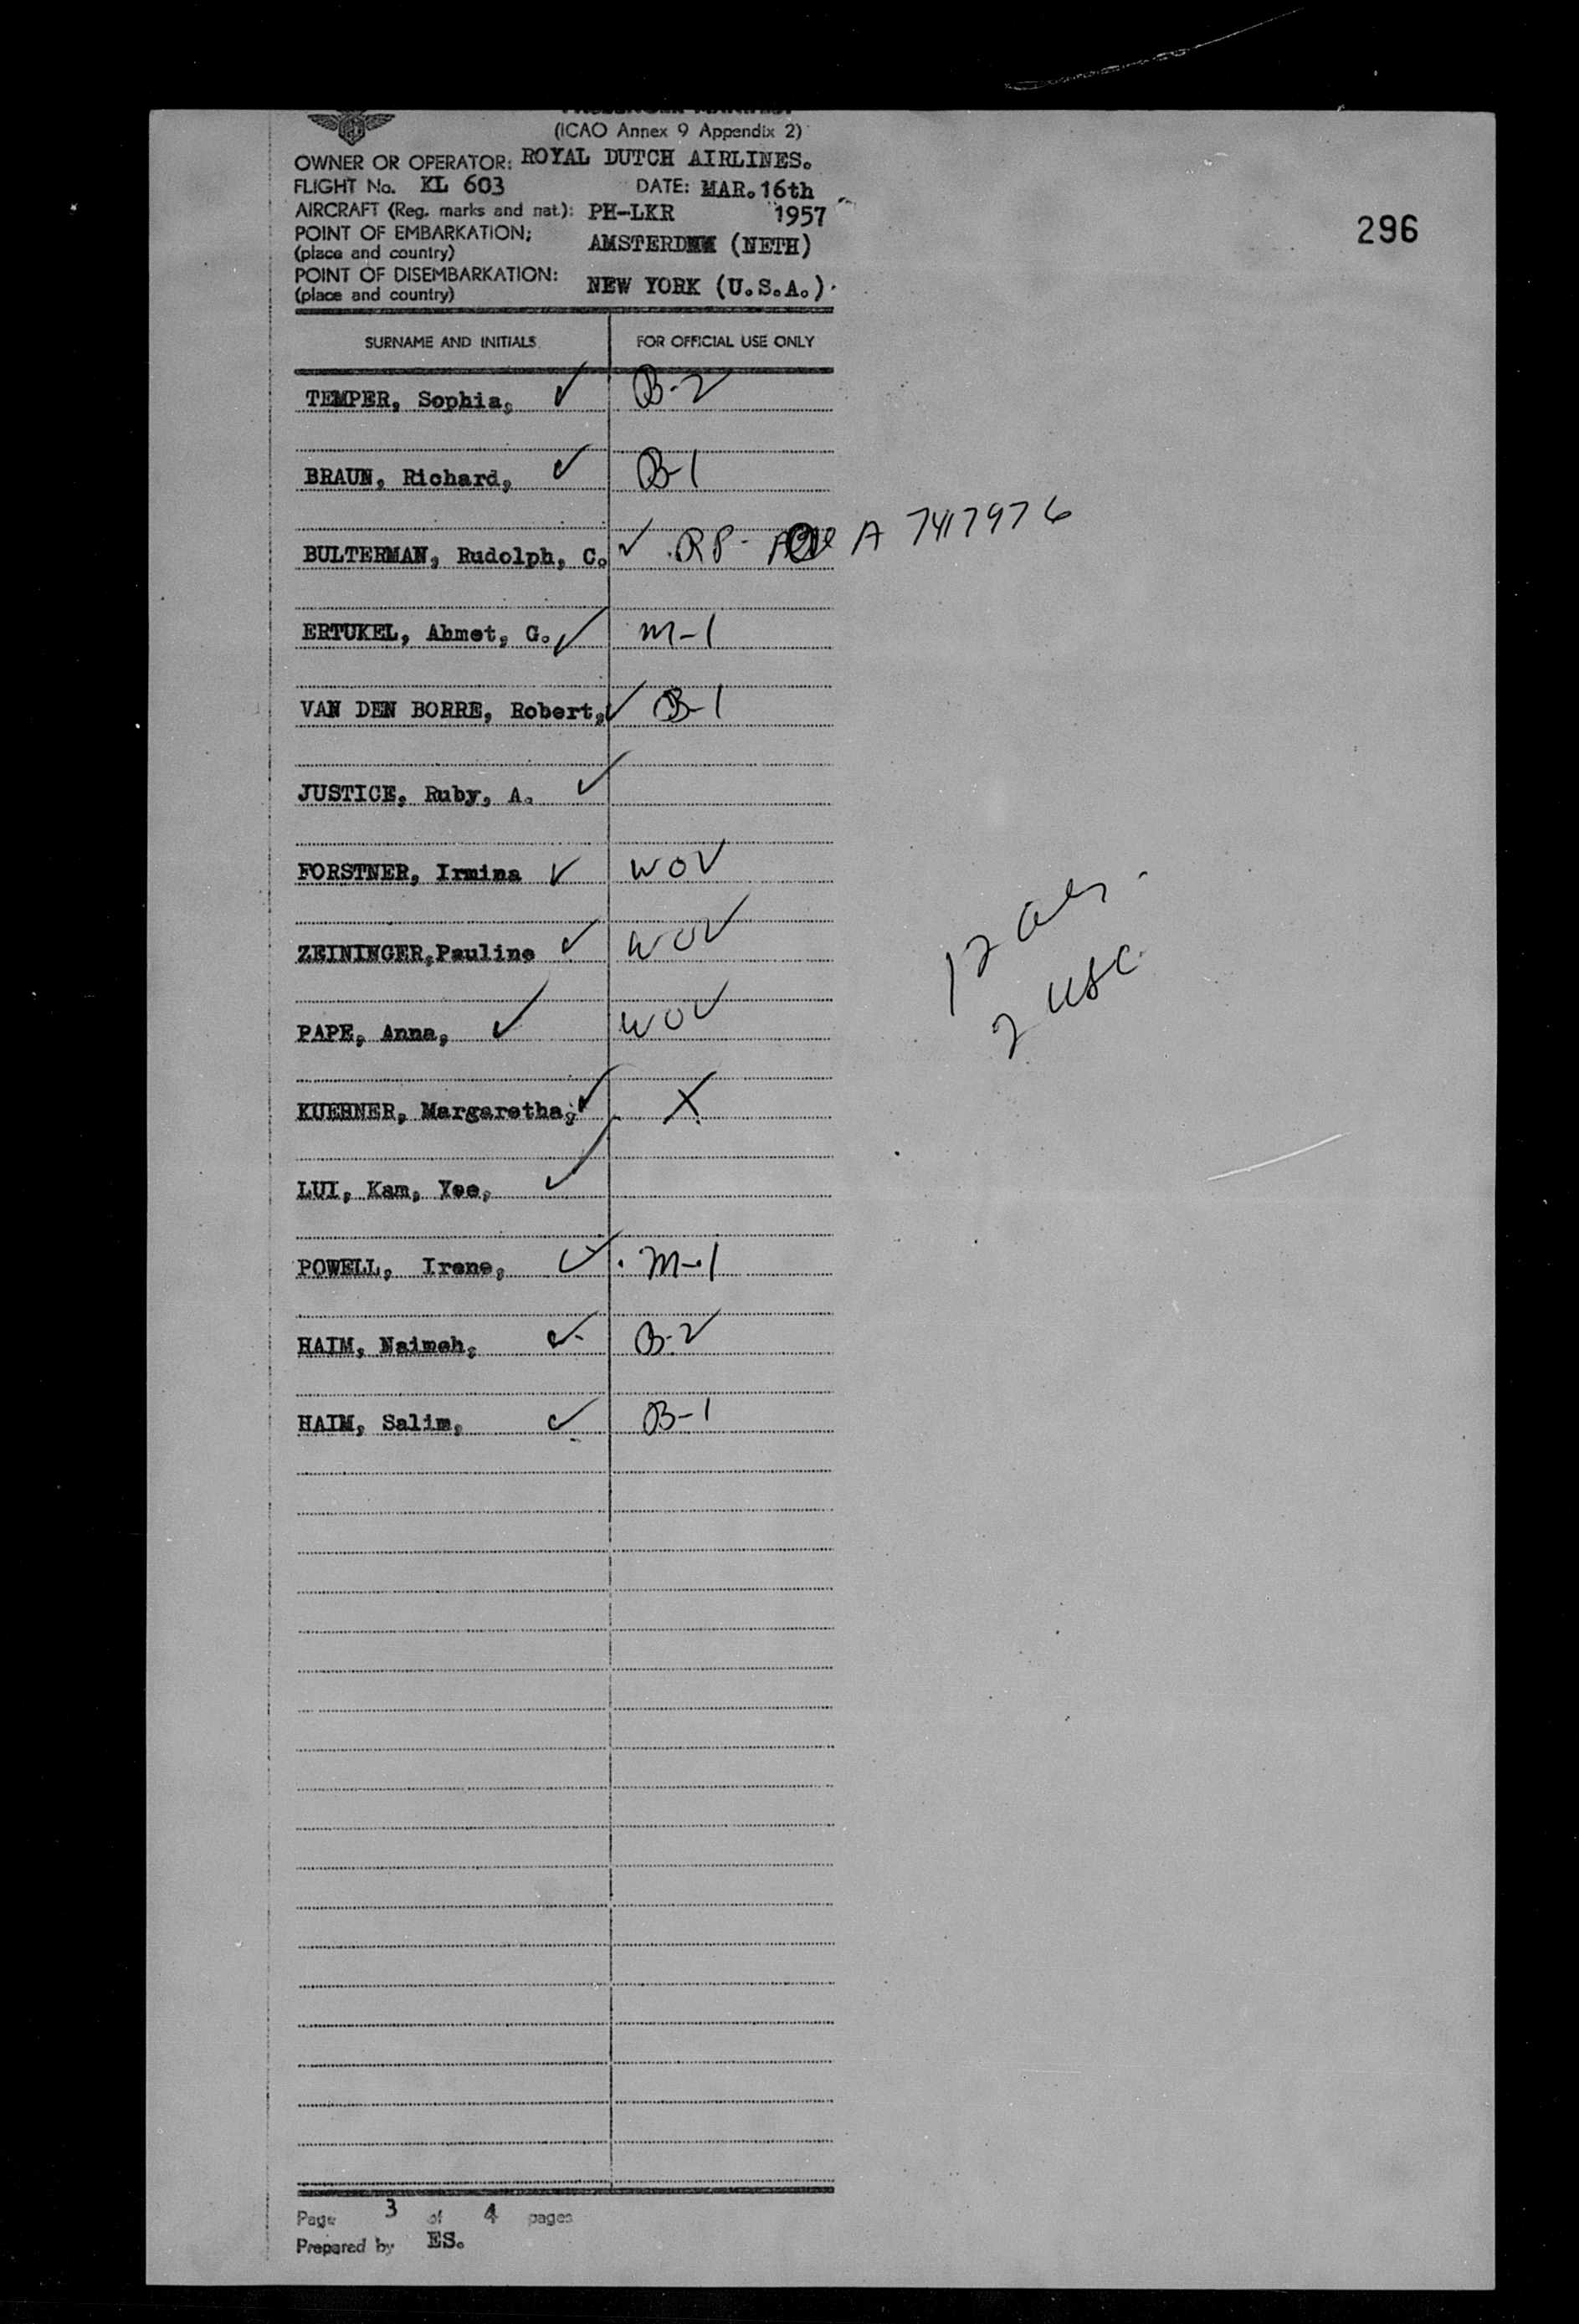 (ICAO Annex 9 Appendix 2)
OWNER OR OPERATOR: ROYAL DUTCH AIRLINES.
FLIGHT No. KL 603 DATE: MAR. 16th
AIRCRAFT (Reg. marks and nat.): PH-LKR 1957
296
POINT OF EMBARKATION;
(place and country) (NETH)
POINT OF DISEMBARKATION:
(place and country) NEW YORK (U.S.A.)
SURNAME AND INITIALS FOR OFFICIAL USE ONLY
TEMPER, Sophia, ✓ B-2
BRAUN, Richard, ✓ B-1
BULTERMAN, Rudolph, C. ✓ RP- A 7417976
ERTUKEL, Ahmet, G. ✓ M-1
VAN DEN BORRE, Robert, ✓ B-1
JUSTICE, Ruby, A. ✓
FORSTNER, Irmina ✓ WOV
ZEININGER,Pauline ✓ WOV
PAPE, Anna, ✓ WOV
KUEHNER, Margaretha, ✓ X
LUI, Kam, Yee, ✓
POWELL, Irene, ✓ M-1
HAIM, Naimeh, ✓ B-2
HAIM, Salim, ✓ B-1
12
2 USC
Page 3 of 4 pages
Prepared by ES.